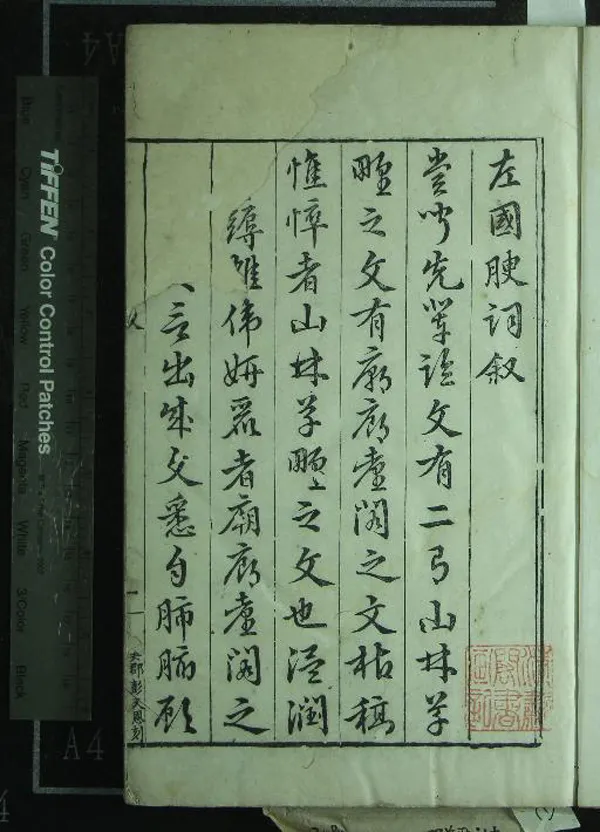 左國腴詞叙
嘗聞先輩論文有二有山林草
野之文有廟廊臺閣之文枯稿
憔悴者山林草野之文也溫潤
縟雄偉妍麗者廟廊臺閣之
言出成文悉自肺腑顧
吳郡彭天恩刻
TIFFEN Color Control Patches
Blue Cyan Green Yellow Red Magenta White 3/Color Black
A4
A4